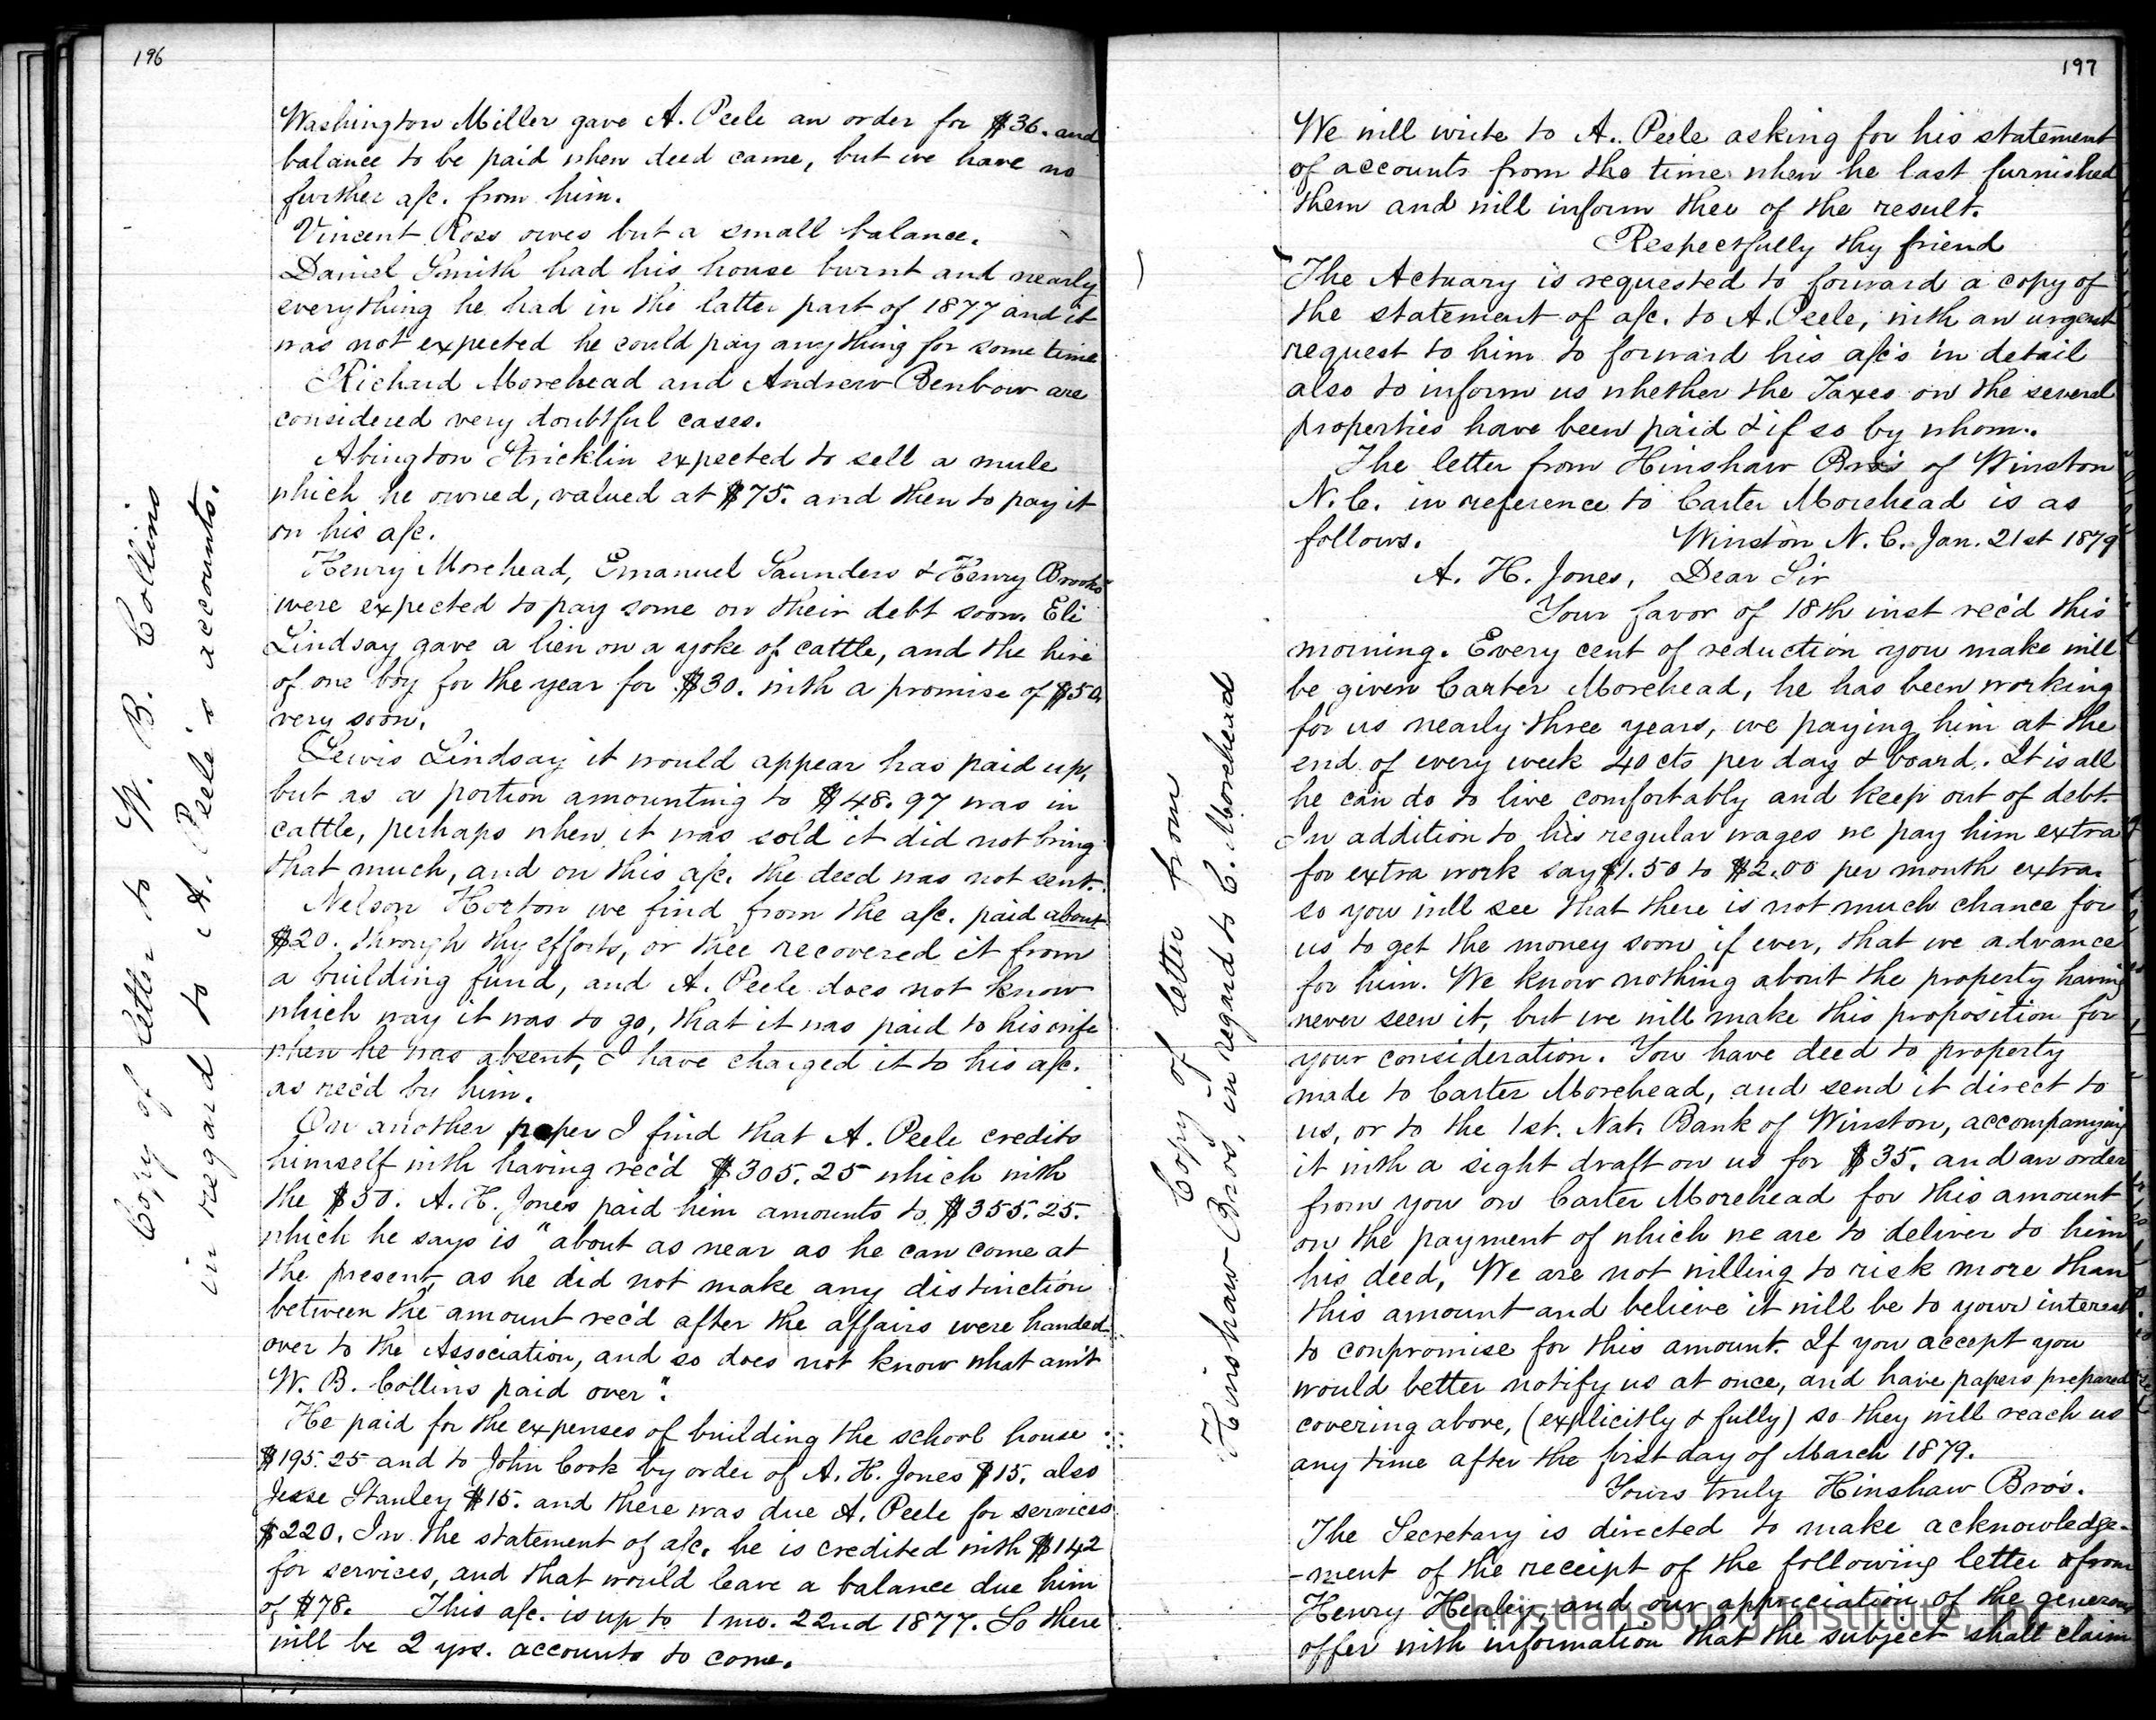 196
Copy of letter to W. B. Collins
in regard to A. Peele's accounts.
Washington Miller gave A. Peele an order for $36. and
balance to be paid when deed came, but we have no
further a/c. from him.
Vincent Ross owes but a small balance.
Daniel Smith had his house burnt and nearly
everything he had in the latter part of 1877 and it
was not expected he could pay anything for some time
Richard Morehead and Andrew Benbow are
considered very doubtful cases.
Abington Stricklin expected to sell a mule
which he owned, valued at $75. and then to pay it
on his a/c.
Henry Morehead, Emanuel Saunders & Henry Brooks
were expected to pay some on their debt soon. Eli
Lindsay gave a lien on a yoke of cattle, and the hire
of one boy for the year for $30. with a promise of $50.
very soon.
Lewis Lindsay it would appear has paid up,
but as a portion amounting to $48.97 was in
cattle, perhaps when it was sold it did not bring
that much, and on this a/c. the deed was not sent.
Nelson Horton we find from the a/c. paid about
$20. through thy efforts, or thee recovered it from
a building fund, and A. Peele does not know
which way it was to go, that it was paid to his wife
when he was absent, I have charged it to his a/c.
as rec'd by him.
On another paper I find that A. Peele credits
himself with having rec'd $305.25 which with
the $50. A. H. Jones paid him amounts to $355.25.
which he says is "about as near as he can come at
the present, as he did not make any distinction
between the amount rec'd after the affairs were handed
over to the Association, and so does not know what am't
W. B. Collins paid over".
He paid for the expenses of building the school house
$195.25 and to John Cook by order of A. H. Jones $15. also
Jesse Stanley $15. and there was due A. Peele for services
$220. In the statement of a/c. he is credited with $142
for services, and that would leave a balance due him
of $78. This a/c. is up to 1 mo. 22nd 1877. So there
will be 2 yrs. accounts to come.
197
Copy of letter from
Hinshaw Bros, in regard to C. Morehead
We will write to A. Peele asking for his statement
of accounts from the time when he last furnished
them and will inform thee of the result.
Respectfully thy friend
The Actuary is requested to forward a copy of
the statement of a/c. to A. Peele, with an urgent
request to him to forward his a/c's in detail
also to inform us whether the Taxes on the several
properties have been paid & if so by whom.
The letter from Hinshaw Bro's of Winston
N. C. in reference to Carter Morehead is as
follows. Winston N. C. Jan. 21st 1879
A. H. Jones, Dear Sir
Your favor of 18th inst rec'd this
morning. Every cent of reduction you make will
be given Carter Morehead, he has been working
for us nearly three years, we paying him at the
end of every week 40 cts per day & board. It is all
he can do to live comfortably and keep out of debt.
In addition to his regular wages we pay him extra
for extra work say $1.50 to $2.00 per month extra.
so you will see that there is not much chance for
us to get the money soon if ever, that we advance
for him. We know nothing about the property having
never seen it, but we will make this proposition for
your consideration. You have deed to property
made to Carter Morehead, and send it direct to
us, or to the 1st. Nat. Bank of Winston, accompanying
it with a sight draft on us for $35. and an order
from you on Carter Morehead for this amount
on the payment of which we are to deliver to him
his deed, We are not willing to risk more than
this amount and believe it will be to your interest
to conpromise for this amount. If you accept you
would better notify us at once, and have papers prepared
covering above, (explicitly & fully) so they will reach us
any time after the first day of March 1879.
Yours truly Hinshaw Bro's.
The Secretary is directed to make acknowledge-
-ment of the receipt of the following letter from
Henry Henley, and our appreciation of the generous
offer with information that the subject shall claim
Christiansburg Institute, Inc